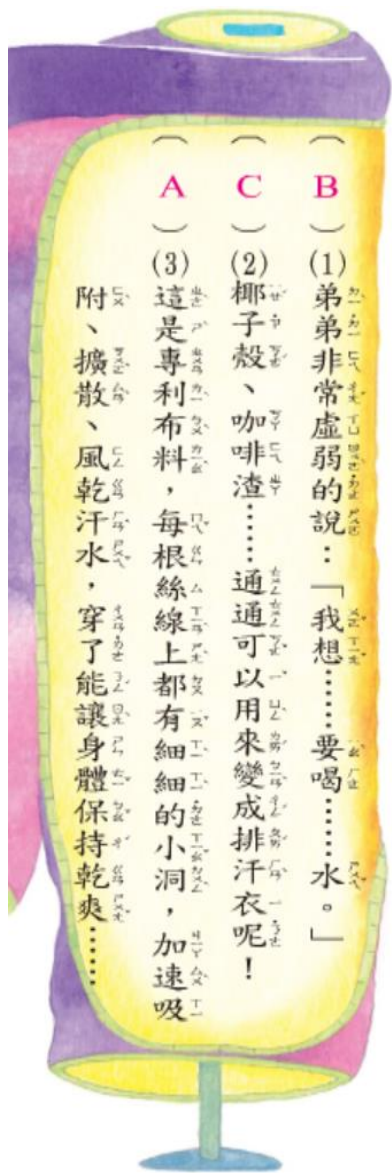 （B）(1)弟弟非常虛弱的說：「我想……要喝……水。」
（C）(2)椰子殼、咖啡渣……通通可以用來變成排汗衣呢！
（A）(3)這是專利布料，每根絲線上都有細細的小洞，加速吸
附、擴散、風乾汗水，穿了能讓身體保持乾爽……